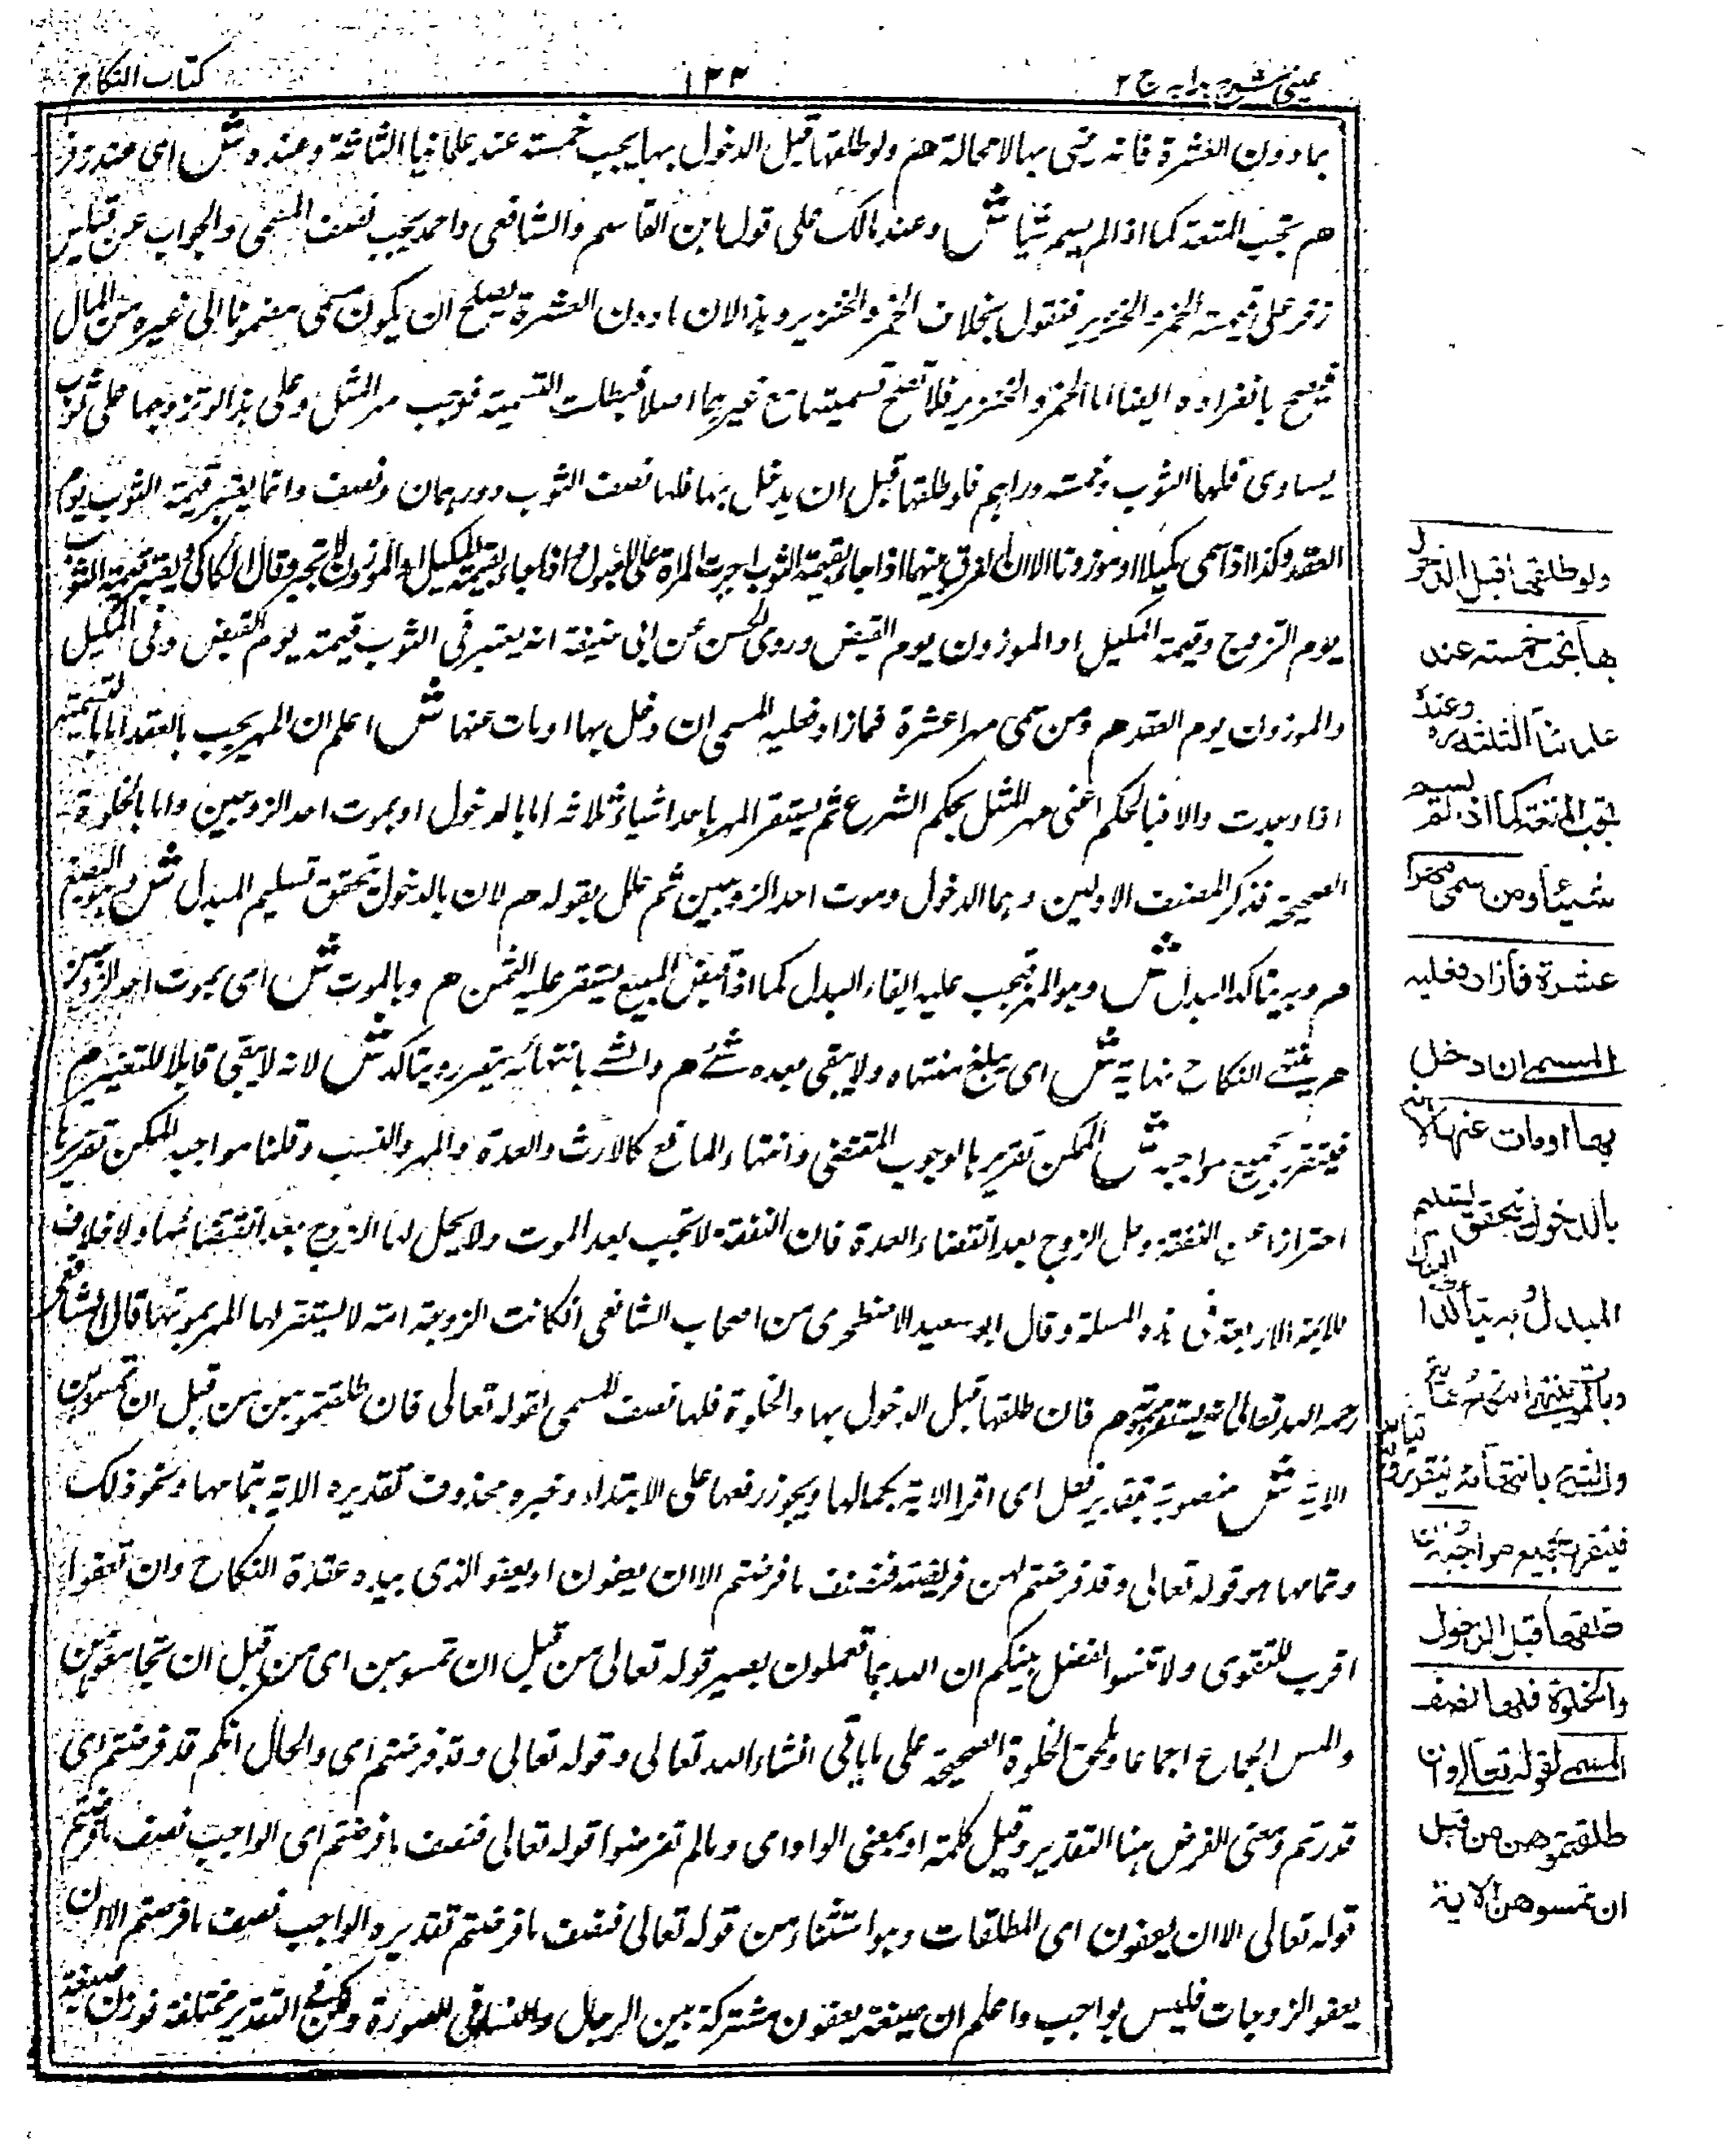 عینی شرح ہدایہ ج ۲
۱۳۳
کتاب النکاح
بما دون العشرة فانه يرضى بها لا محالة هم ولو طلقها قبل الدخول بها يجب خمسة عند علمائنا الثلثة وعنده ش اى عند زفر
هم تجب المتعة كما اذا لم يسم شيئا ش وعند مالك على قول ابن القاسم والشافعى واحمد يجب نصف المسمى والجواب عن قياس
زفر على قيمة الخمر والخنزير فنقول بخلاف الخمر والخنزير وهذا لان ما دون العشرة يصلح ان يكون مسمى مضموما الى غيره من المال
فيصح بانفراده ايضا اما الخمر والخنزير فلا تصح تسميتها مع غيرهما اصلا فبطلت التسمية فوجب مهر المثل وعلى هذا لو تزوجها على ثوب
يساوى فلها الثوب وخمسة دراهم فلو طلقها قبل ان يدخل بها فلها نصف الثوب ودرهمان ونصف وانما يعتبر قيمة الثوب يوم
العقد وكذا اذا سمى مكيلا او موزونا الا ان الفرق بينهما اذا جاء بقيمة الثوب اجبرت المراة على القبول واذا جاء بقيمة المكيل والموزون لا تجبر وقال الكاكى يعتبر قيمة الثوب
يوم التزوج وقيمة المكيل او الموزون يوم القبض وروى الحسن عن ابى حنيفة انه يعتبر فى الثوب قيمة يوم القبض وفى المكيل
والموزون يوم العقد هم ومن سمى مهرا عشرة فما زاد فعليه المسمى ان دخل بها او مات عنها ش اعلم ان المهر يجب بالعقد اما بالتسمية
اذا وجدت والا فبالحكم اعنى مهر المثل بحكم الشرع ثم يستقر المهر باحد اشياء ثلاثة اما بالدخول او بموت احد الزوجين واما بالخلوة
الصحيحة فذكر المصنف الاولين وهما الدخول وموت احد الزوجين ثم علل بقوله هم لان بالدخول تحقق تسليم المبدل ش وهو البضع
هم وبه يتاكد البدل ش وهو المهر فيجب عليه ايفاء البدل كما اذا قبض المبيع يستقر عليه الثمن هم وبالموت ش اى بموت احد الزوجين
هم ينتهى النكاح نهايته ش اى يبلغ منتهاه ولا يبقى بعده شئ هم والشئ بانتهائه يتقرر ويتاكد ش لانه لا يبقى قابلا للتغير هم
فيتقرر بجميع مواجبه ش الممكن تقريرها لوجوب المقتضى وانتفاء المانع كالارث والعدة والمهر والنسب وقلنا مواجبه الممكن تقريرها
احترازا عن النفقة وحل الزوج بعد انقضاء العدة فان النفقة لا تجب بعد الموت ولا يحل لها الزوج بعد انقضائها ولا خلاف
للايمة الاربعة فى هذه المسلة وقال ابو سعيد الاصطخرى من اصحاب الشافعى ان كانت الزوجة امة لا يستقر لها المهر بموتها قال الشافعى
رحمه الله تعالى يستقر هم فان طلقها قبل الدخول بها والخلوة فلها نصف المسمى لقوله تعالى فان طلقتموهن من قبل ان تمسوهن
الاية ش منصوبة بتقدير فعل اى اقرا الاية بكمالها ويجوز رفعها على الابتداء وخبره محذوف تقديره الاية بتمامها ونحو ذلك
وتمامها هو قوله تعالى وقد فرضتم لهن فريضة فنصف ما فرضتم الا ان يعفون او يعفو الذى بيده عقدة النكاح وان تعفوا
اقرب للتقوى ولا تنسوا الفضل بينكم ان الله بما تعملون بصير قوله تعالى من قبل ان تمسوهن اى من قبل ان تجامعوهن
والمس الجماع اجماعا ويلحق الخلوة الصحيحة على ما ياتى انشاء الله تعالى وقوله تعالى وقد فرضتم اى والحال انكم قد فرضتم اى
قدرتم ومعنى الفرض هنا التقدير وقيل كلمة او بمعنى الواو اى وما لم تفرضوا قوله تعالى فنصف ما فرضتم اى الواجب نصف ما فرضتم
قوله تعالى الا ان يعفون اى المطلقات وهو استثناء من قوله تعالى فنصف ما فرضتم تقديره الواجب نصف ما فرضتم الا ان
يعفو الزوجات فليس بواجب واعلم ان صيغة يعفون مشتركة بين الرجال والنساء فى الصورة ولكن فى التقدير مختلفة فوزن صيغة
ولو طلقها قبل الدخول
بها تجب خمسة عند
علمائنا الثلثة وعنده
تجب المتعة كما اذا لم يسم
شيئا ومن سمى مهرا
عشرة فما زاد فعليه
المسمى ان دخل
بها او مات عنها لانه
بالدخول يتحقق تسليم
المبدل وبه يتاكد البدل
وبالموت ينتهى النكاح نهايته
والشئ بانتهائه يتقرر ويتاكد
فيتقرر بجميع مواجبه وان
طلقها قبل الدخول
والخلوة فلها نصف
المسمى لقوله تعالى وان
طلقتموهن من قبل
ان تمسوهن الاية